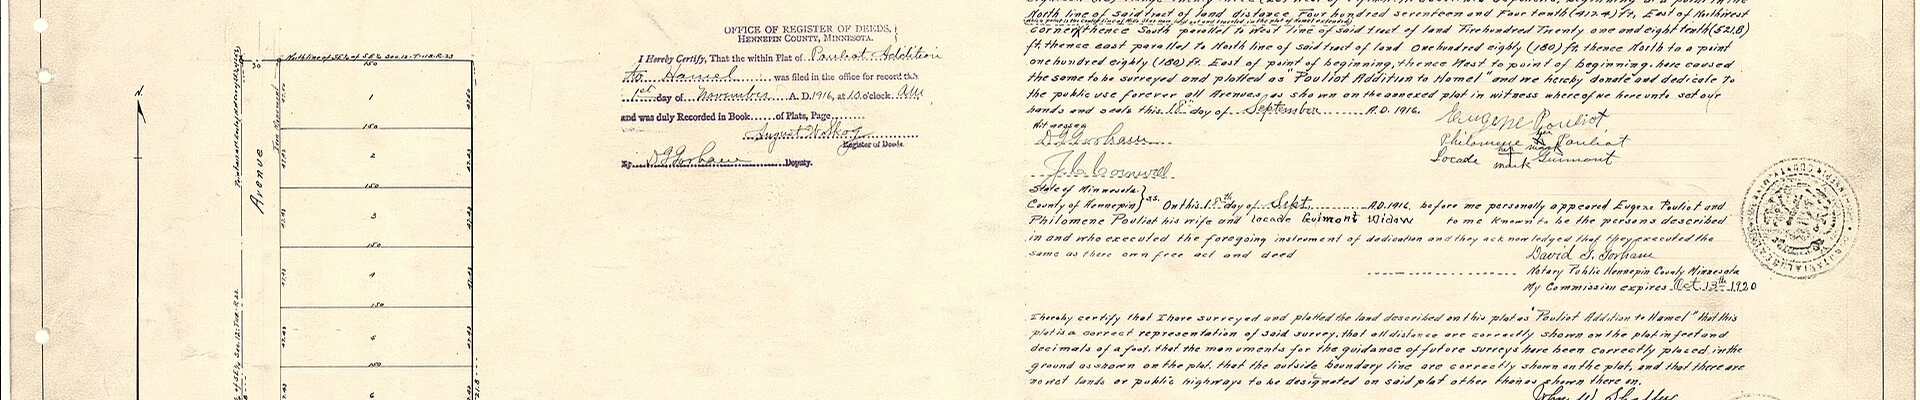 North line of SE¼ of SE¼ Sec. 12-T.118-R.23
N.
30
150
1
Avenue
150
2
150
3
150
4
150
5
150
6
OFFICE OF REGISTER OF DEEDS,
HENNEPIN COUNTY, MINNESOTA.
I Hereby Certify, That the within Plat of Pouliot Addition
to Hamel was filed in the office for record this
1st day of November A. D. 1916, at 10 o'clock AM
and was duly Recorded in Book of Plats, Page
Register of Deeds.
By D G Gorham Deputy.
North line of said tract of land distance Four hundred seventeen and Four tenth (417.4) ft. East of Northwest
corner thence South parallel to West line of said tract of land Fivehundred Twenty one and eight tenth (521.8)
ft. thence east parallel to North line of said tract of land Onehundred eighty (180) ft. thence North to a point
onehundred eighty (180) ft. East of point of beginning, thence West to point of beginning. have caused
the same to be surveyed and platted as "Pouliot Addition to Hamel" and we hereby donate and dedicate to
the public use forever all Avenues as shown on the annexed plat in witness whereof we hereunto set our
hands and seals this 18th day of September A.D. 1916.
Witnesses
D G Gorham
Eugene Pouliot
Philomene Pouliot
Locade mark Guimont
State of Minnesota
County of Hennepin } ss. On this 18th day of Sept. A.D. 1916. before me personally appeared Eugene Pouliot and
Philomene Pouliot his wife and Locade Guimont Widow to me known to be the persons described
in and who executed the foregoing instrument of dedication and they acknowledged that they executed the
same as there own free act and deed
David G. Gorham
Notary Public Hennepin County Minnesota
My Commission expires Oct 13th 1920
I hereby certify that I have surveyed and platted the land described on this plat as "Pouliot Addition to Hamel" that this
plat is a correct representation of said survey, that all distance are correctly shown on the plat in feet and
decimals of a foot, that the monuments for the guidance of future surveys have been correctly placed in the
ground as shown on the plat, that the outside boundary line are correctly shown on the plat, and that there are
no wet lands or public highways to be designated on said plat other than as shown there on.